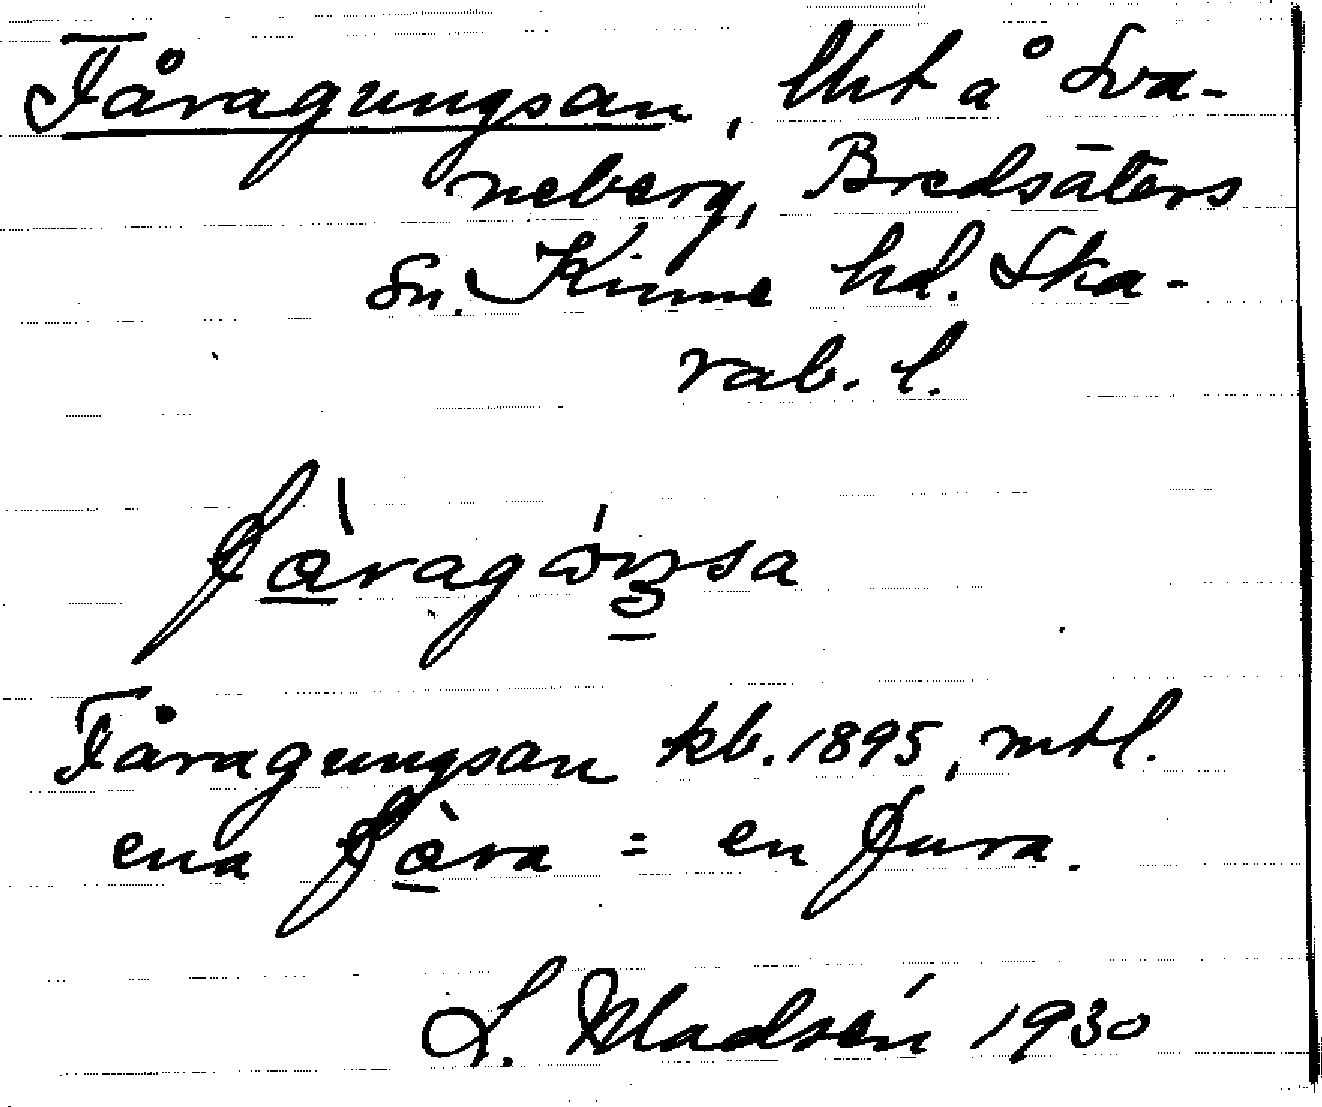 Fåragungsan, lht å Sva-
neberg, Bredsäters
sn. Kinne hd. Ska-
rab. l.
Fåragungsan kb. 1895, mtl.
ena fàra = en fura.
L. Madsén 1930